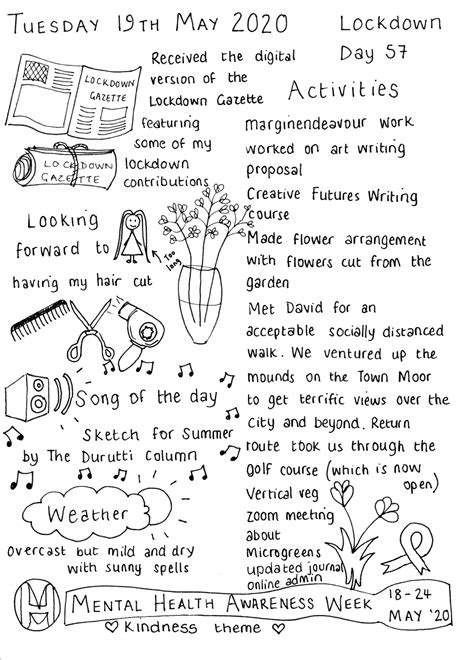 Tuesday 19th May 2020
Lockdown
Day 57
Received the digital
version of the
Lockdown Gazette
featuring
some of my
lockdown
contributions
LOCKDOWN
GAZETTE
LOCKDOWN
GAZETTE
Looking
forward to
having my hair cut
Too
long
Song of the day
Sketch for Summer
by The Durutti Column
Weather
Overcast but mild and dry
with sunny spells
Activities
marginendeavour work
worked on art writing
proposal
Creative Futures Writing
course
Made flower arrangement
with flowers cut from the
garden
Met David for an
acceptable socially distanced
walk. We ventured up the
mounds on the Town Moor
to get terrific views over the
city and beyond. Return
route took us through the
golf course (which is now
open)
Vertical veg
zoom meeting
about
Microgreens
updated journal
online admin
Mental Health Awareness Week
18-24
May '20
Kindness theme